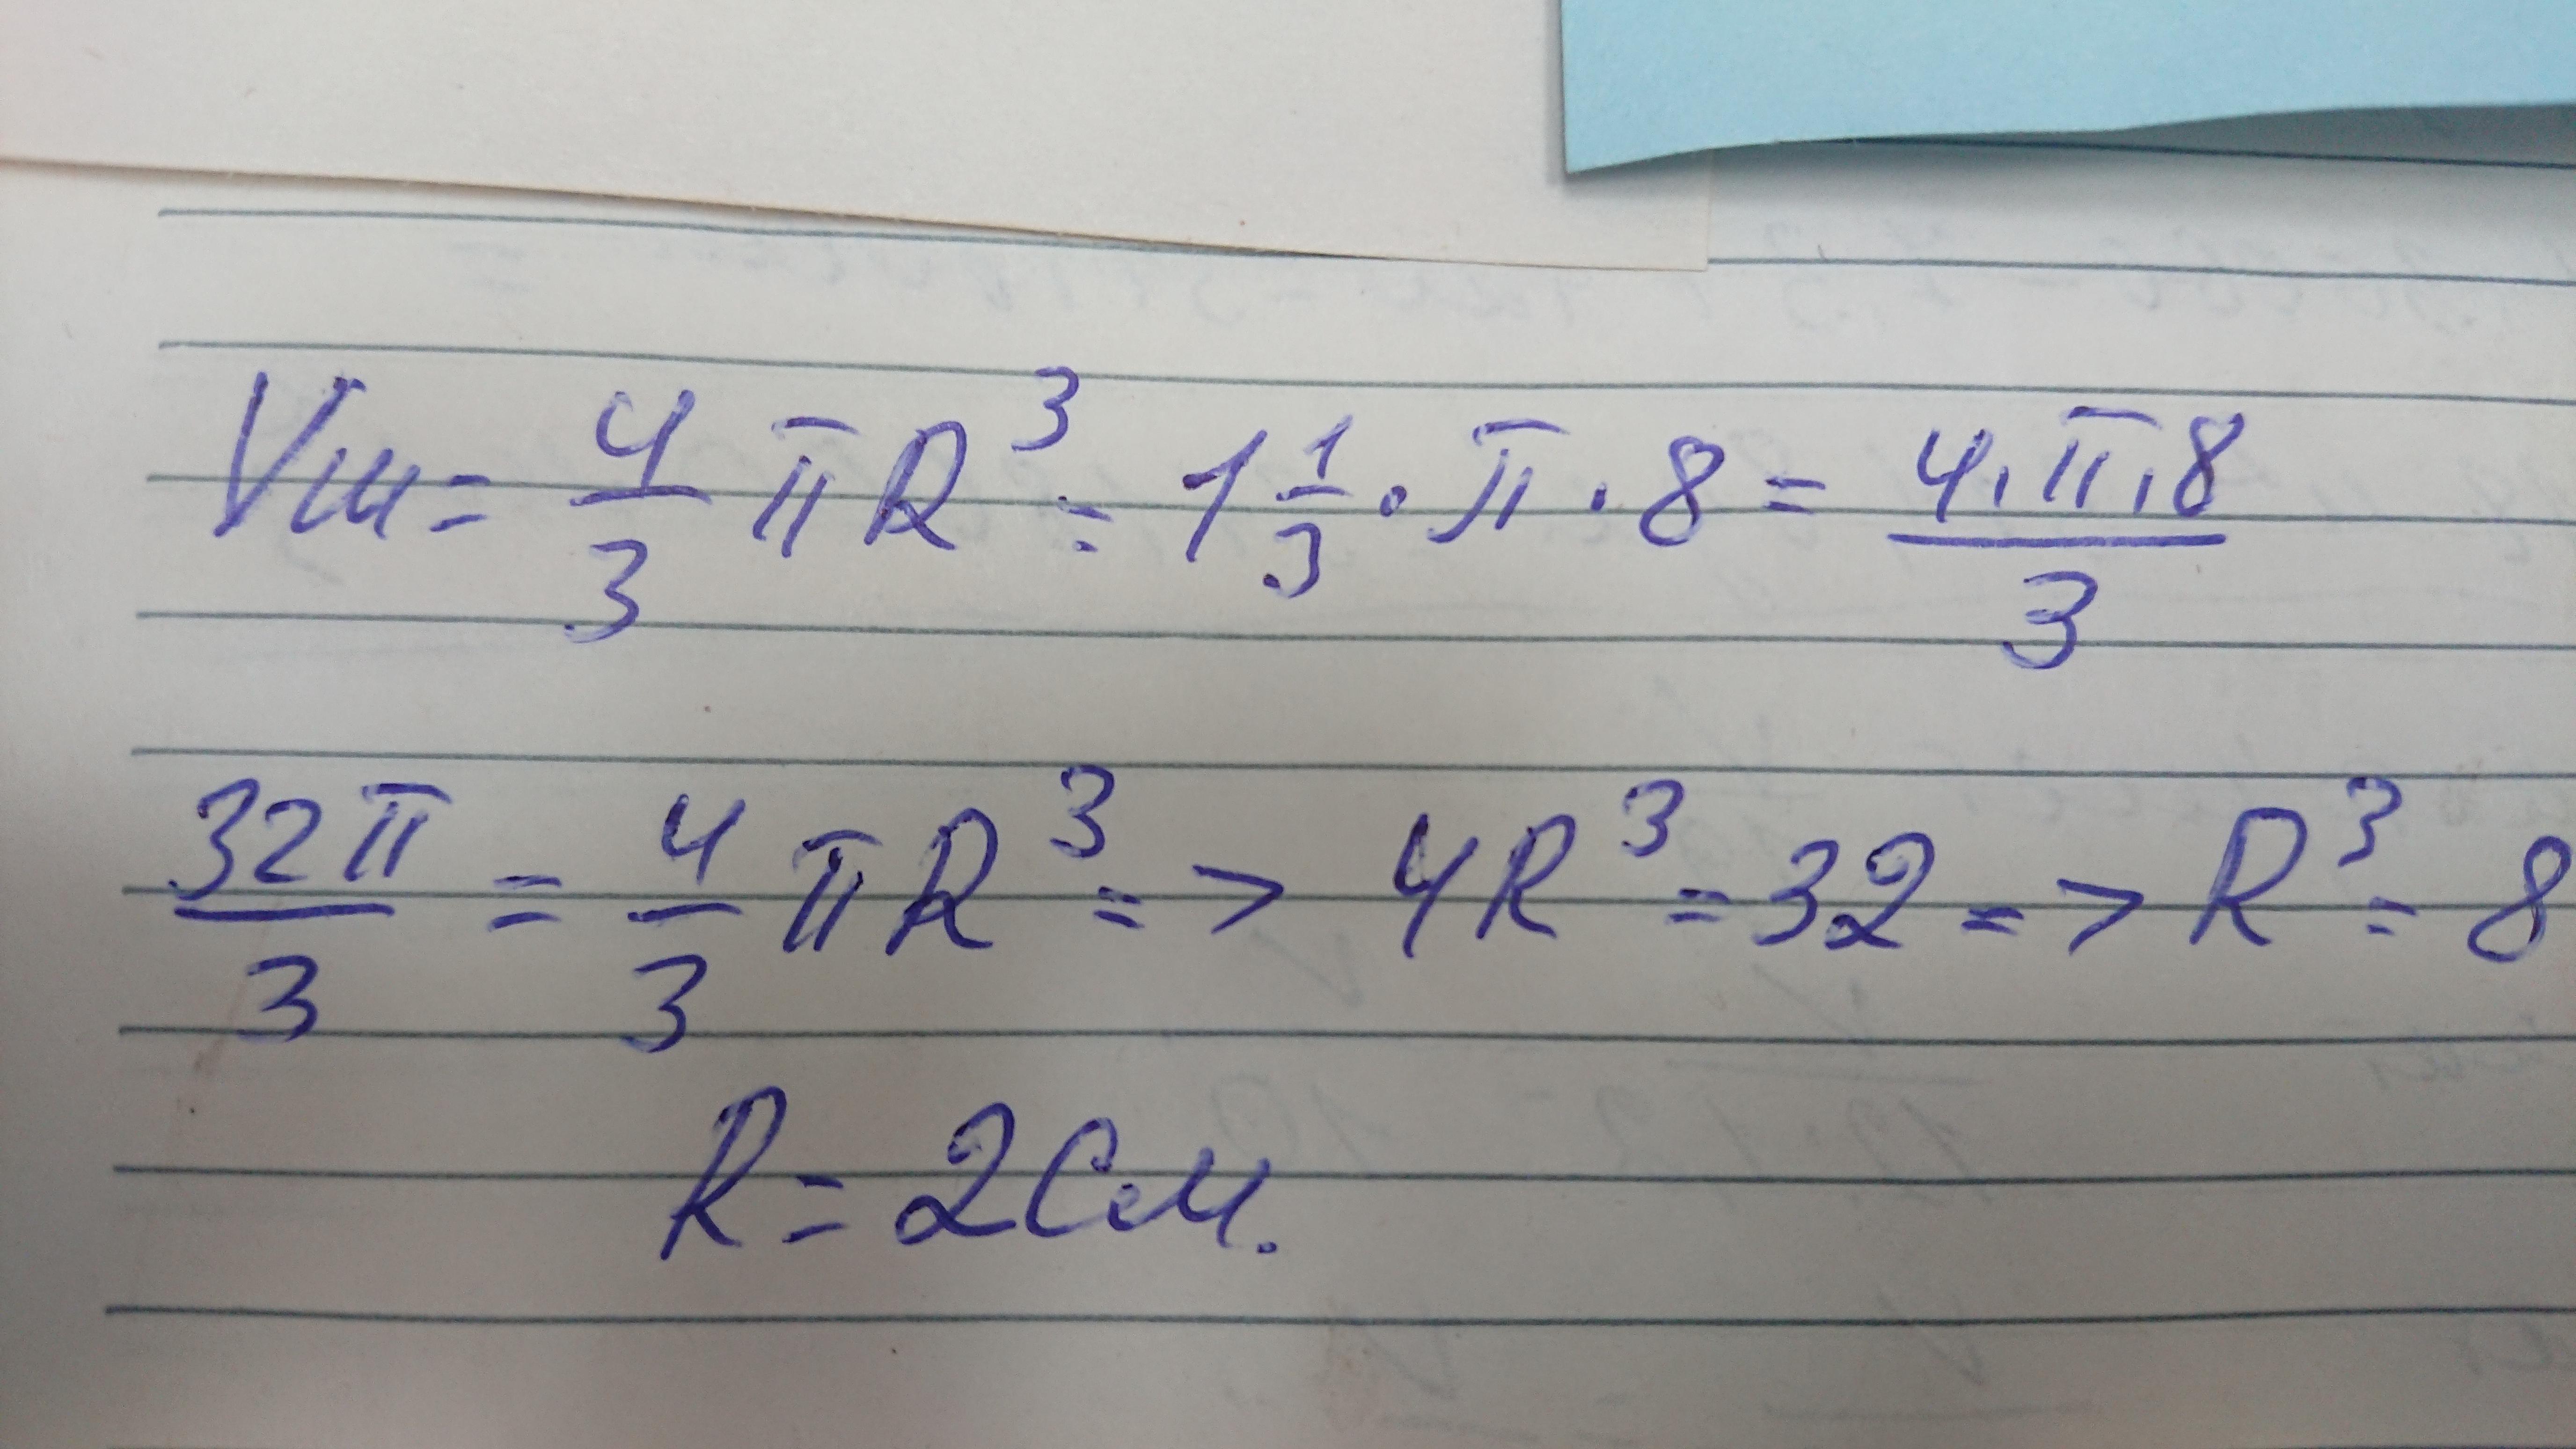 Vш = 4/3 πR³ = 1 1/3 · π · 8 = 4·π·8/3
32π/3 = 4/3 πR³ => 4R³ = 32 => R³ = 8
R = 2см.